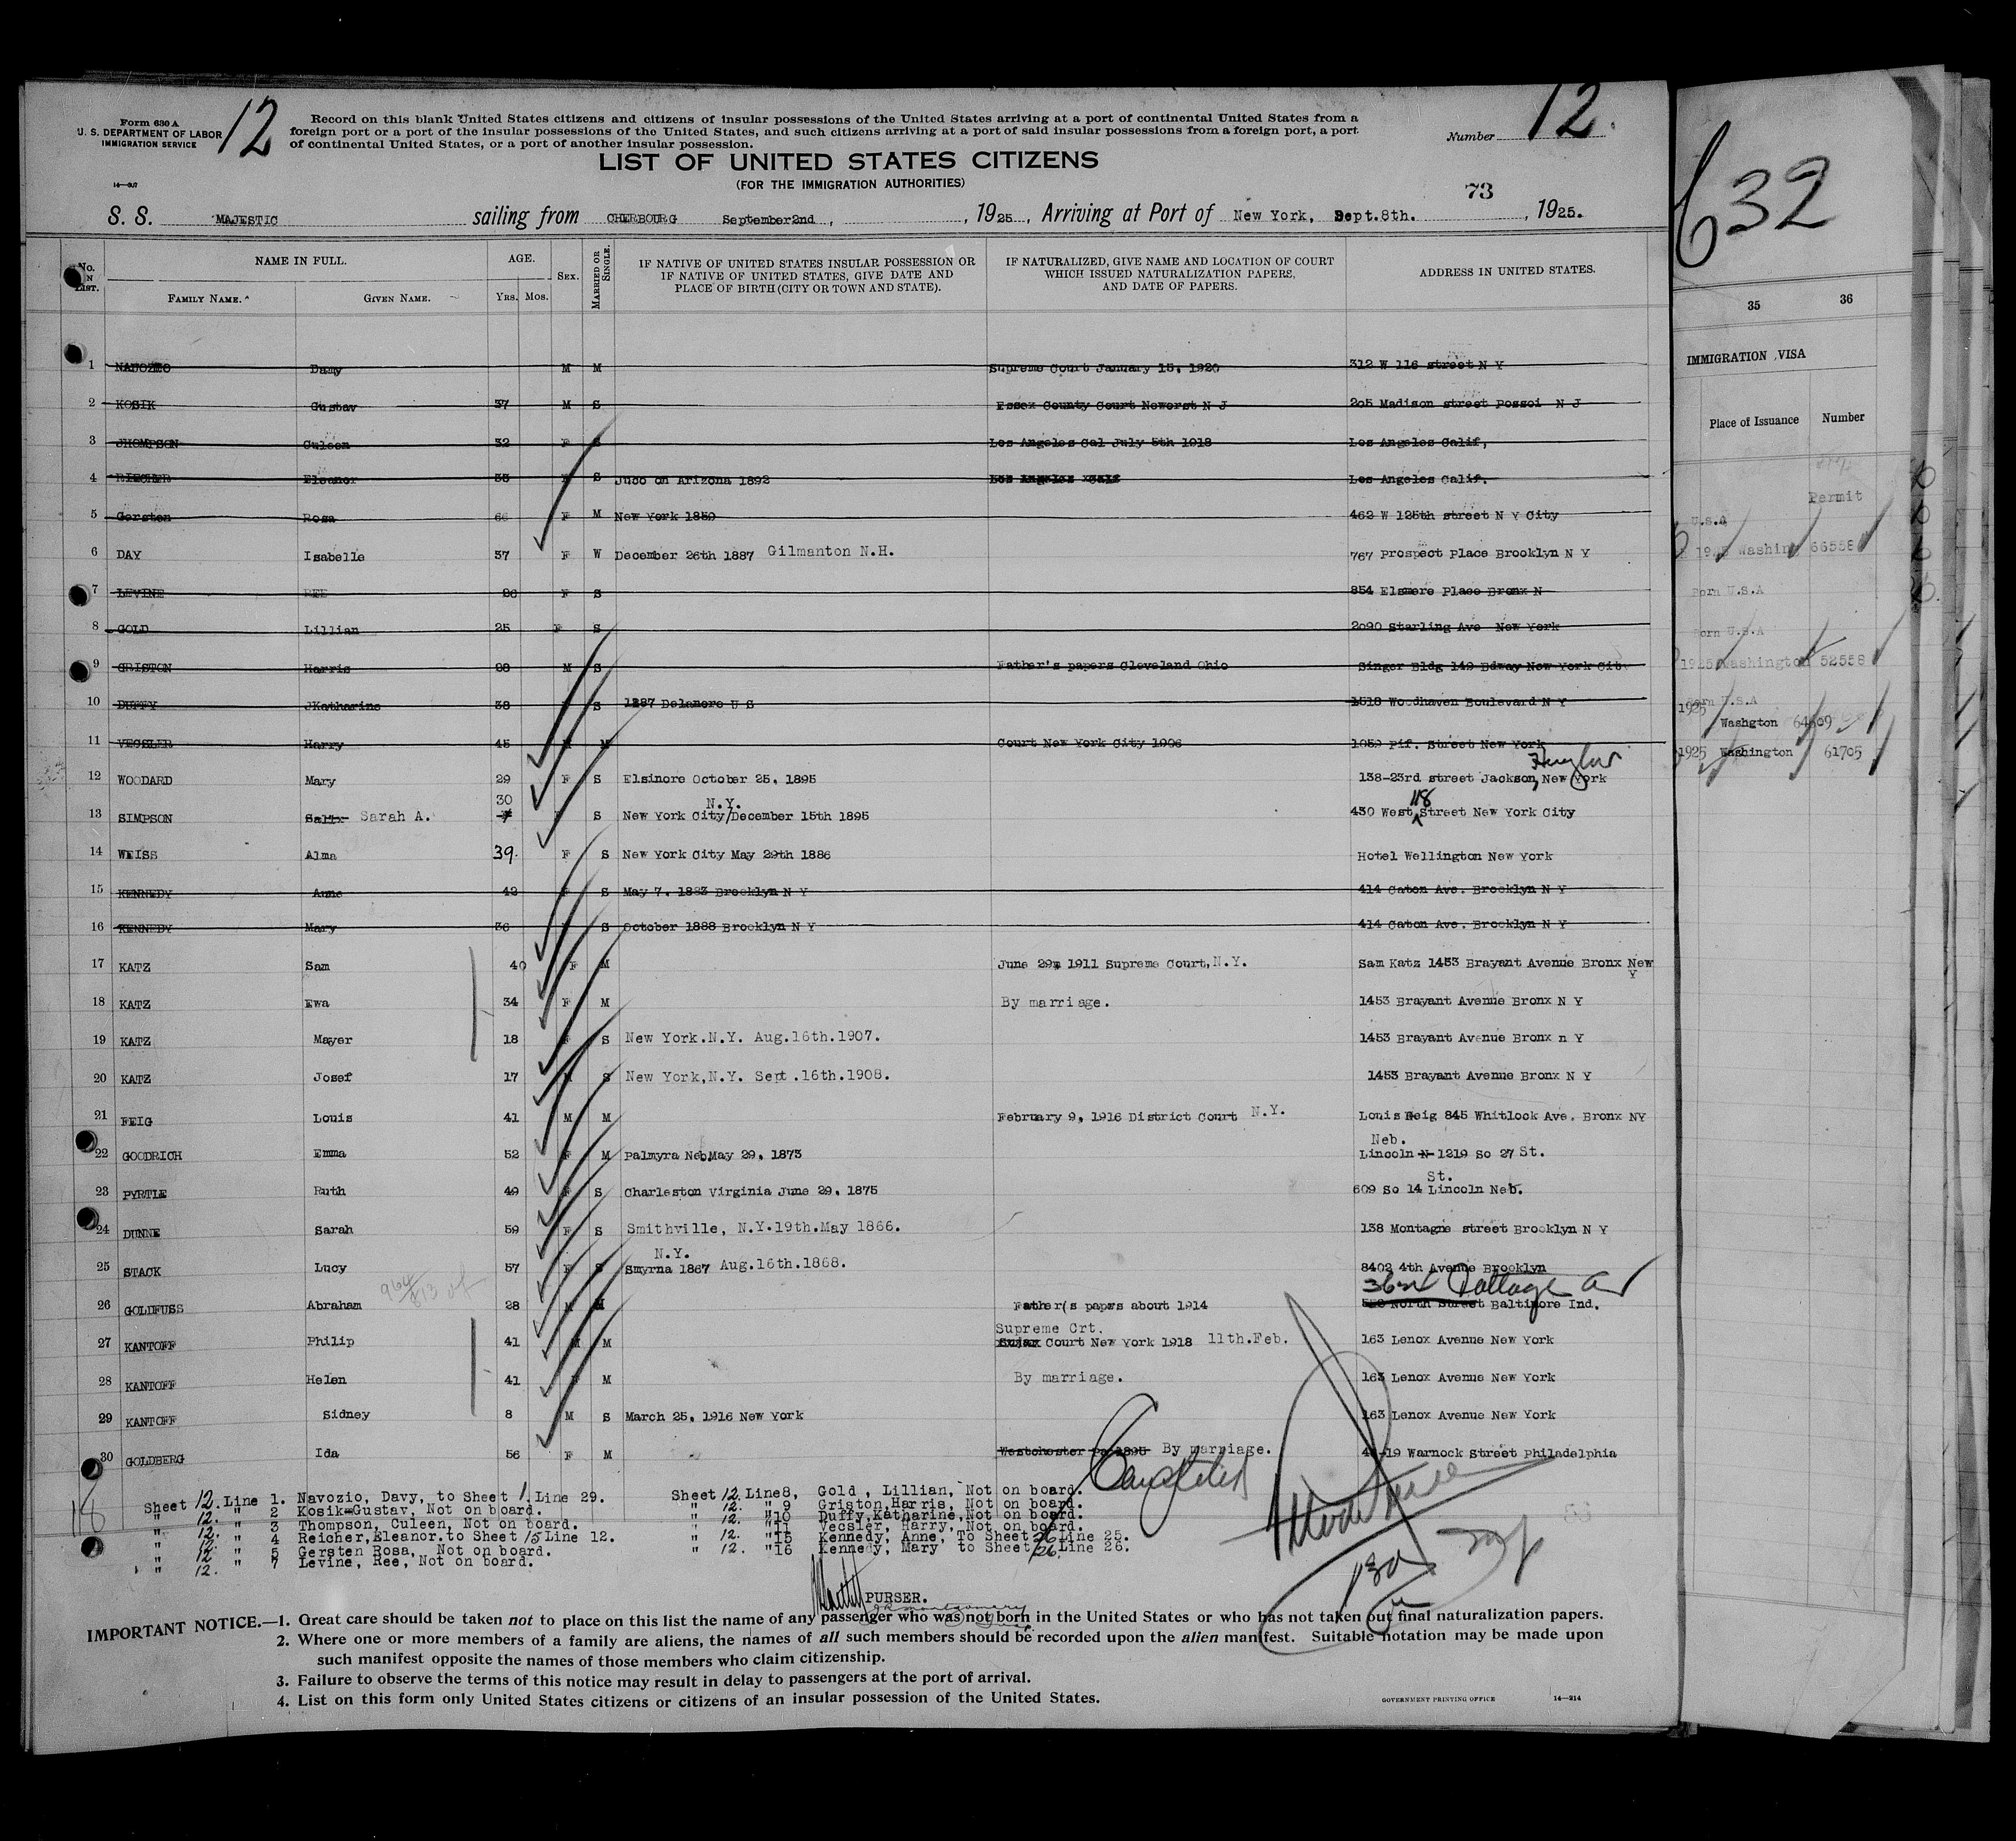 Form 630 A
U. S. DEPARTMENT OF LABOR
IMMIGRATION SERVICE
12
Record on this blank United States citizens and citizens of insular possessions of the United States arriving at a port of continental United States from a
foreign port or a port of the insular possessions of the United States, and such citizens arriving at a port of said insular possessions from a foreign port, a port
of continental United States, or a port of another insular possession.
Number 12.
LIST OF UNITED STATES CITIZENS
(FOR THE IMMIGRATION AUTHORITIES)
73
S. S. MAJESTIC sailing from CHERBOURG September 2nd, , 1925, Arriving at Port of New York, Sept.8th. , 1925.
No. IN LIST.
NAME IN FULL.
FAMILY NAME.
GIVEN NAME.
AGE.
YRS. MOS.
SEX.
MARRIED OR SINGLE.
IF NATIVE OF UNITED STATES INSULAR POSSESSION OR
IF NATIVE OF UNITED STATES, GIVE DATE AND
PLACE OF BIRTH (CITY OR TOWN AND STATE).
IF NATURALIZED, GIVE NAME AND LOCATION OF COURT
WHICH ISSUED NATURALIZATION PAPERS,
AND DATE OF PAPERS.
ADDRESS IN UNITED STATES.
1 NAVOZIO Damy M M Supreme Court January 15, 1920 312 W 116 street N Y
2 KOSIK Gustav 37 M S Essex County Court Neworst N J 205 Madison street Possoi N J
3 JHOMPSON Culeen 32 F S Los Angeles Cal July 5th 1918 Los Angeles Calif,
4 RIECHER Eleanor 33 S Juco on Arizona 1892 Los Angeles Calif Los Angeles Calif.
5 Gersten Rosa 66 F M New York 1859 462 W 125th street N Y City
6 DAY Isabelle 37 F W December 26th 1887 Gilmanton N.H. 767 Prospect Place Brooklyn N Y
7 LEVINE REE 26 F S 854 Elsmere Place Bronx N
8 GOLD Lillian 25 F S 2090 Starling Ave New York
9 GRISTON Harris 28 M S Father's papers Cleveland Ohio Singer Bldg 149 Bdway New York City
10 DUFFY JKatharine 38 S 1887 Delanore U S 1518 Woodhaven Boulevard N Y
11 VECSLER Harry 45 M M Court New York City 1906 1059 Fif. Street New York
12 WOODARD Mary 29 F S Elsinore October 25, 1895 138-23rd street Jackson, New York
30
N.Y.
118
13 SIMPSON Sarah A. S New York City/December 15th 1895 430 West Street New York City
14 WEISS Alma 39. F S New York City May 29th 1886 Hotel Wellington New York
15 KENNEDY Anne 42 S May 7, 1883 Brooklyn N Y 414 Caton Ave. Brooklyn N Y
16 KENNEDY Mary 36 S October 1888 Brooklyn N Y 414 Caton Ave. Brooklyn N Y
17 KATZ Sam 40 F M June 29, 1911 Supreme Court, N.Y. Sam Katz 1453 Brayant Avenue Bronx New
Y
18 KATZ Ewa 34 F M By marriage. 1453 Brayant Avenue Bronx N Y
19 KATZ Mayer 18 F S New York.N.Y. Aug.16th.1907. 1453 Brayant Avenue Bronx n Y
20 KATZ Josef 17 M S New York,N.Y. Sept.16th.1908. 1453 Brayant Avenue Bronx N Y
21 FEIG Louis 41 M M February 9, 1916 District Court N.Y. Louis Feig 845 Whitlock Ave. Bronx NY
Neb.
22 GOODRICH Emma 52 F M Palmyra Neb.May 29, 1873 Lincoln N 1219 So 27 St.
St.
23 PYRTLE Ruth 49 F S Charleston Virginia June 29, 1875 609 So 14 Lincoln Neb.
24 DUNNE Sarah 59 F S Smithville, N.Y.19th.May 1866. 138 Montagne street Brooklyn N Y
N.Y.
25 STACK Lucy 57 F S Smyrna 1867 Aug.16th.1868. 8402 4th Avenue Brooklyn
26 GOLDFUSS Abraham 28 M M Father(s papers about 1914 North Street Baltimore Ind.
Supreme Crt.
27 KANTOFF Philip 41 M M Court New York 1918 11th.Feb. 163 Lenox Avenue New York
28 KANTOFF Helen 41 F M By marriage. 163 Lenox Avenue New York
29 KANTOFF Sidney 8 M S March 25, 1916 New York 163 Lenox Avenue New York
30 GOLDBERG Ida 56 F M Westchester Pa 1895 By marriage. 19 Warnock Street Philadelphia
Sheet 12. Line 1. Navozio, Davy, to Sheet 1, Line 29.
" 12. " 2 Kosik-Gustav, Not on board.
" 12. " 3 Thompson, Culeen, Not on board.
" 12. " 4 Reicher, Eleanor. to Sheet 15 Line 12.
" 12 " 5 Gersten Rosa, Not on board.
" 12. " 7 Levine, Ree, Not on board.
Sheet 12. Line 8, Gold, Lillian, Not on board.
" 12. " 9 Griston, Harris, Not on board.
" 10 Duffy, Katharine, Not on board.
" 11 Vecsler, Harry, Not on board.
" 12. " 15 Kennedy, Anne, To Sheet 26 Line 25.
" 12. " 16 Kennedy, Mary to Sheet 26 Line 26.
PURSER.
IMPORTANT NOTICE.—1. Great care should be taken not to place on this list the name of any passenger who was not born in the United States or who has not taken out final naturalization papers.
2. Where one or more members of a family are aliens, the names of all such members should be recorded upon the alien manifest. Suitable notation may be made upon
such manifest opposite the names of those members who claim citizenship.
3. Failure to observe the terms of this notice may result in delay to passengers at the port of arrival.
4. List on this form only United States citizens or citizens of an insular possession of the United States.
GOVERNMENT PRINTING OFFICE 14—214
632
35 36
IMMIGRATION VISA
Place of Issuance Number
Permit
U.S.A
Washin 66558
Born U.S.A
Born U.S.A
1925 Washington 52558
Born U.S.A
1925 Washgton 64609
1925 Washington 61705